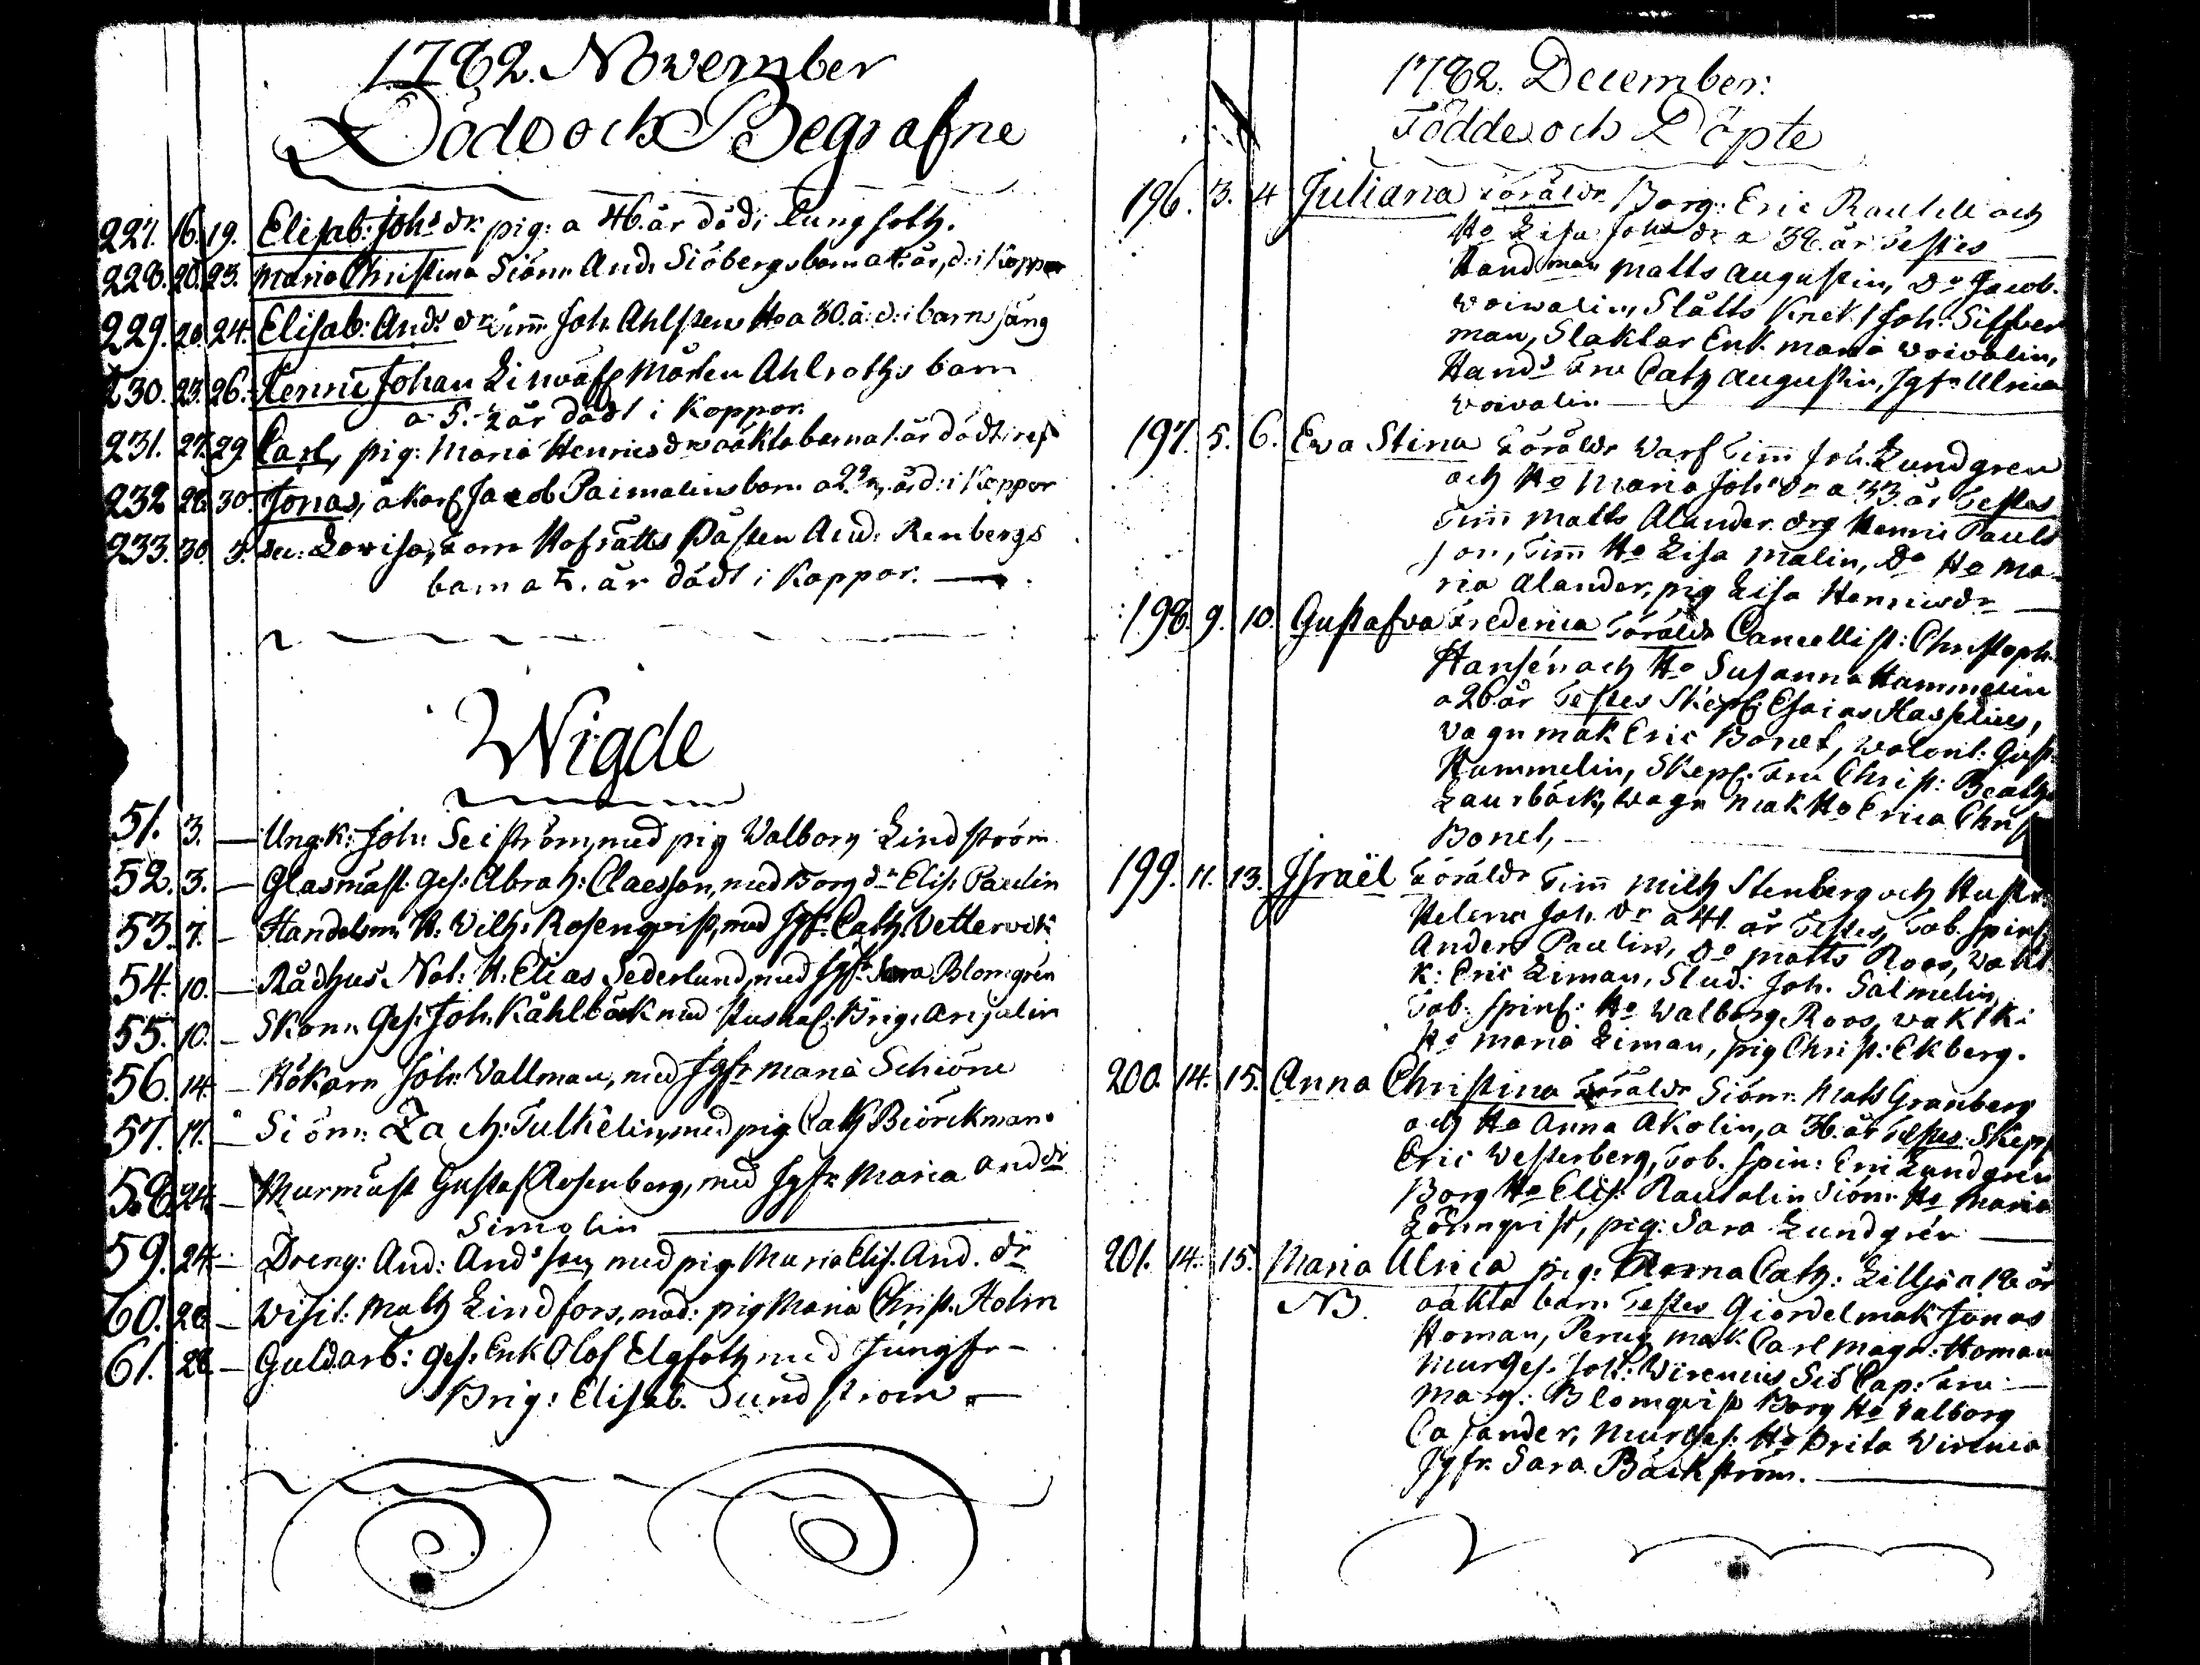 1782. November
Döde och Begrafne
227. 16. 19. Elisab: Johs dr. pig: a 46. år död i Lungsoth.
228. 20. 23. Maria Christina Siöm: And: Siöbergs barn a år, d: i Koppor
229. 20. 24. Elisab: Ands dr Tim̄ Joh. Ahlsten Ho a 30. å: d: i barnsäng
230. 23. 26. Henric Johan Linwäf Mårten Ahlroths barn
a 5. år dödt i Koppor.
231. 27. 29 Carl, pig: Maria Henricsdr oäkta barn a 1. år dödt i
232 28. 30. Jonas, åkarf Jacob Paimalins barn a d: i Koppor
233. 30. 3. Lovisa, Hofrätts And: Renbergs
barn a år dödt i Koppor.
Wigde
51. 3. — Ung. k: Joh: Seiström, med pig Valborg Lindström
52. 3. — Glasmäst. Ges: Abrah: Claesson, med Borg dr Elis: Paulin
53. 7. — Handelsm. H. Wilh: Rosenqvist, med Jgfr. Cath. Vettervik
54. 10. — Rådhus Not: H. Elias Sederlund, med Jgfr Sara Blomgrén
55. 10. — Skom. Ges: Joh: Kåhlbäck med Brig: Anjalin
56. 14. — Hökarn Joh: Vallman, med Jgfr Maria Schiöne
57. 17. — Siöm: Zach: Tulkelin, med pig Cath Biörckman
58. 24. — Murmäst Gustaf Rosenberg, med Jgfr Maria And dr
Simolin
59. 24. — Dreng: And: Ands son, med pig Maria Elis. And. dr
60. 28 — Visit: Math Lindfors, med: pig Maria Christ. Holm
61. 28. — Guldarb: Ges: Enk Olof Elgfoth med Jungfr —
Brig: Elisab. Sundstrom —
1782. December:
Födde och Döpte
196. 3. 4 Juliana Föräldr Borg: Eric och
Ho Lisa Johs dr a 38. år Testes
Handman Matts Augustin, Do Jacob
Woivalin, Slåtts Knekt Joh: Silfver
man, Slaktar Enk. Maria Woivalin,
Hands Fru Cath Augustin, Jgfr Ulrica
Woivalin
197. 5. 6. Eva Stina Föräldr Warf Tim̄ Joh. Lundgren
och Ho Maria Johs dr a 33. år Testes
Tim̄ Matts Alander. drg Henric Pauls
son, Tim̄ Ho Lisa Malin, Do Ho Ma-
ria Alander, pig Lisa Henricsdr —
198. 9. 10. Gustafva Frederica Föräldr Cancellist: Christoph.
Hansén och Ho Susanna Hammelin
a 26 år Testes Skepf: Esaias Hasselius,
Vagnmak Eric Bonet, Volont: Gust:
Hammelin, Skepf. Fru Christ: Beatha
Laurbäck, Wagn mak Ho Erica Christ
Bonet, —
199. 11. 13. Israël Föräldr Tim̄ Mich Stenberg och Hustr:
Helena Joh. dr a 41. år Testes, Tob. spinf:
Anders Paulin, Do Matts Roos, Vakt
k: Eric Liman, Stud: Joh. Salmelin,
Tob. spinf: Ho Walborg Roos, vaktk:
Ho Maria Liman, pig Christ: Ekberg.
200. 14. 15. Anna Christina Föräldr Siöm: Mats Granberg
och Ho Anna Akolin, a 36. år Testes Skepp
Eric Westerberg, Tob. spin: Eric Lundgren
Borg Ho Elis: Rautalin Siöm: Ho Maria
Lönnqvist, pig: Sara Lundgrén —
201. 14. 15. Maria Ulrica pig: Anna Cath: Lillja a 18 år
NB. oäkta barn Testes Giördelmak Jonas
Homan, Perug mak. Carl Magn: Homan
MurGes. Joh: Wirenius Sid Cap: Fru —
Marg: Blomqvist Borg Ho Valborg
Casander, MurGes: Ho Brita Wirenia
Jgfr. Sara Bäckström. —